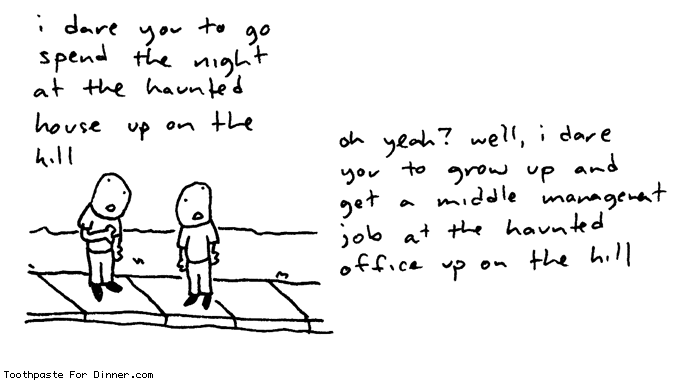 i dare you to go
spend the night
at the haunted
house up on the
hill
oh yeah? well, i dare
you to grow up and
get a middle management
job at the haunted
office up on the hill
Toothpaste For Dinner.com